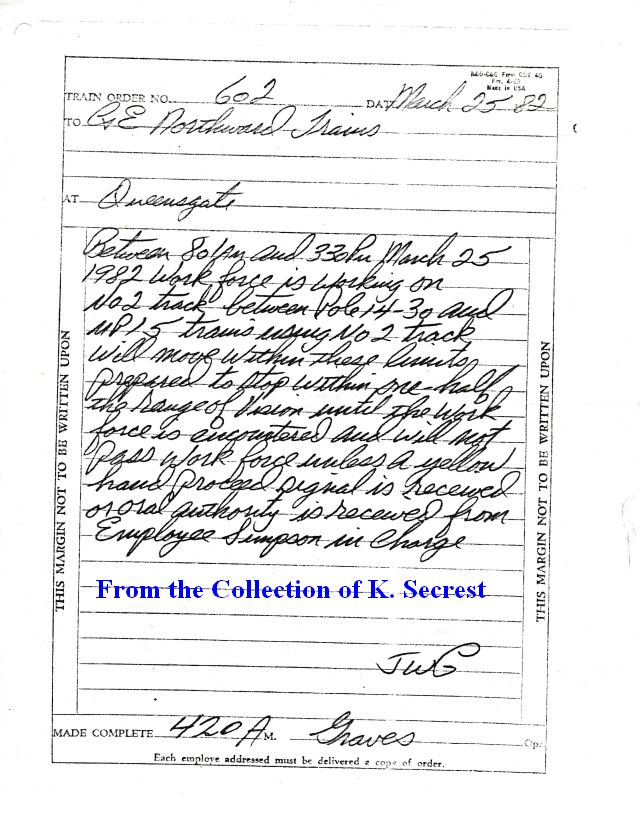 B&O-C&O Form CDT 40
Rev. 4-63
Made in USA
TRAIN ORDER NO. 602 DATE March 25 82
TO C&E Northward Trains
AT Queensgate
Between 801AM and 330PM March 25
1982 Work force is working on
No 2 track between Pole 14-30 and
MP15 trains using No 2 track
will move within these limits
prepared to stop within one-half
the range of vision until the work
force is encountered and will not
Pass Work force unless a yellow
hand Proceed signal is received
or oral authority is received from
Employee Simpson in Charge
From the Collection of K. Secrest
JWG
MADE COMPLETE 420 A M. Graves Opr.
Each employe addressed must be delivered a copy of order.
THIS MARGIN NOT TO BE WRITTEN UPON
THIS MARGIN NOT TO BE WRITTEN UPON